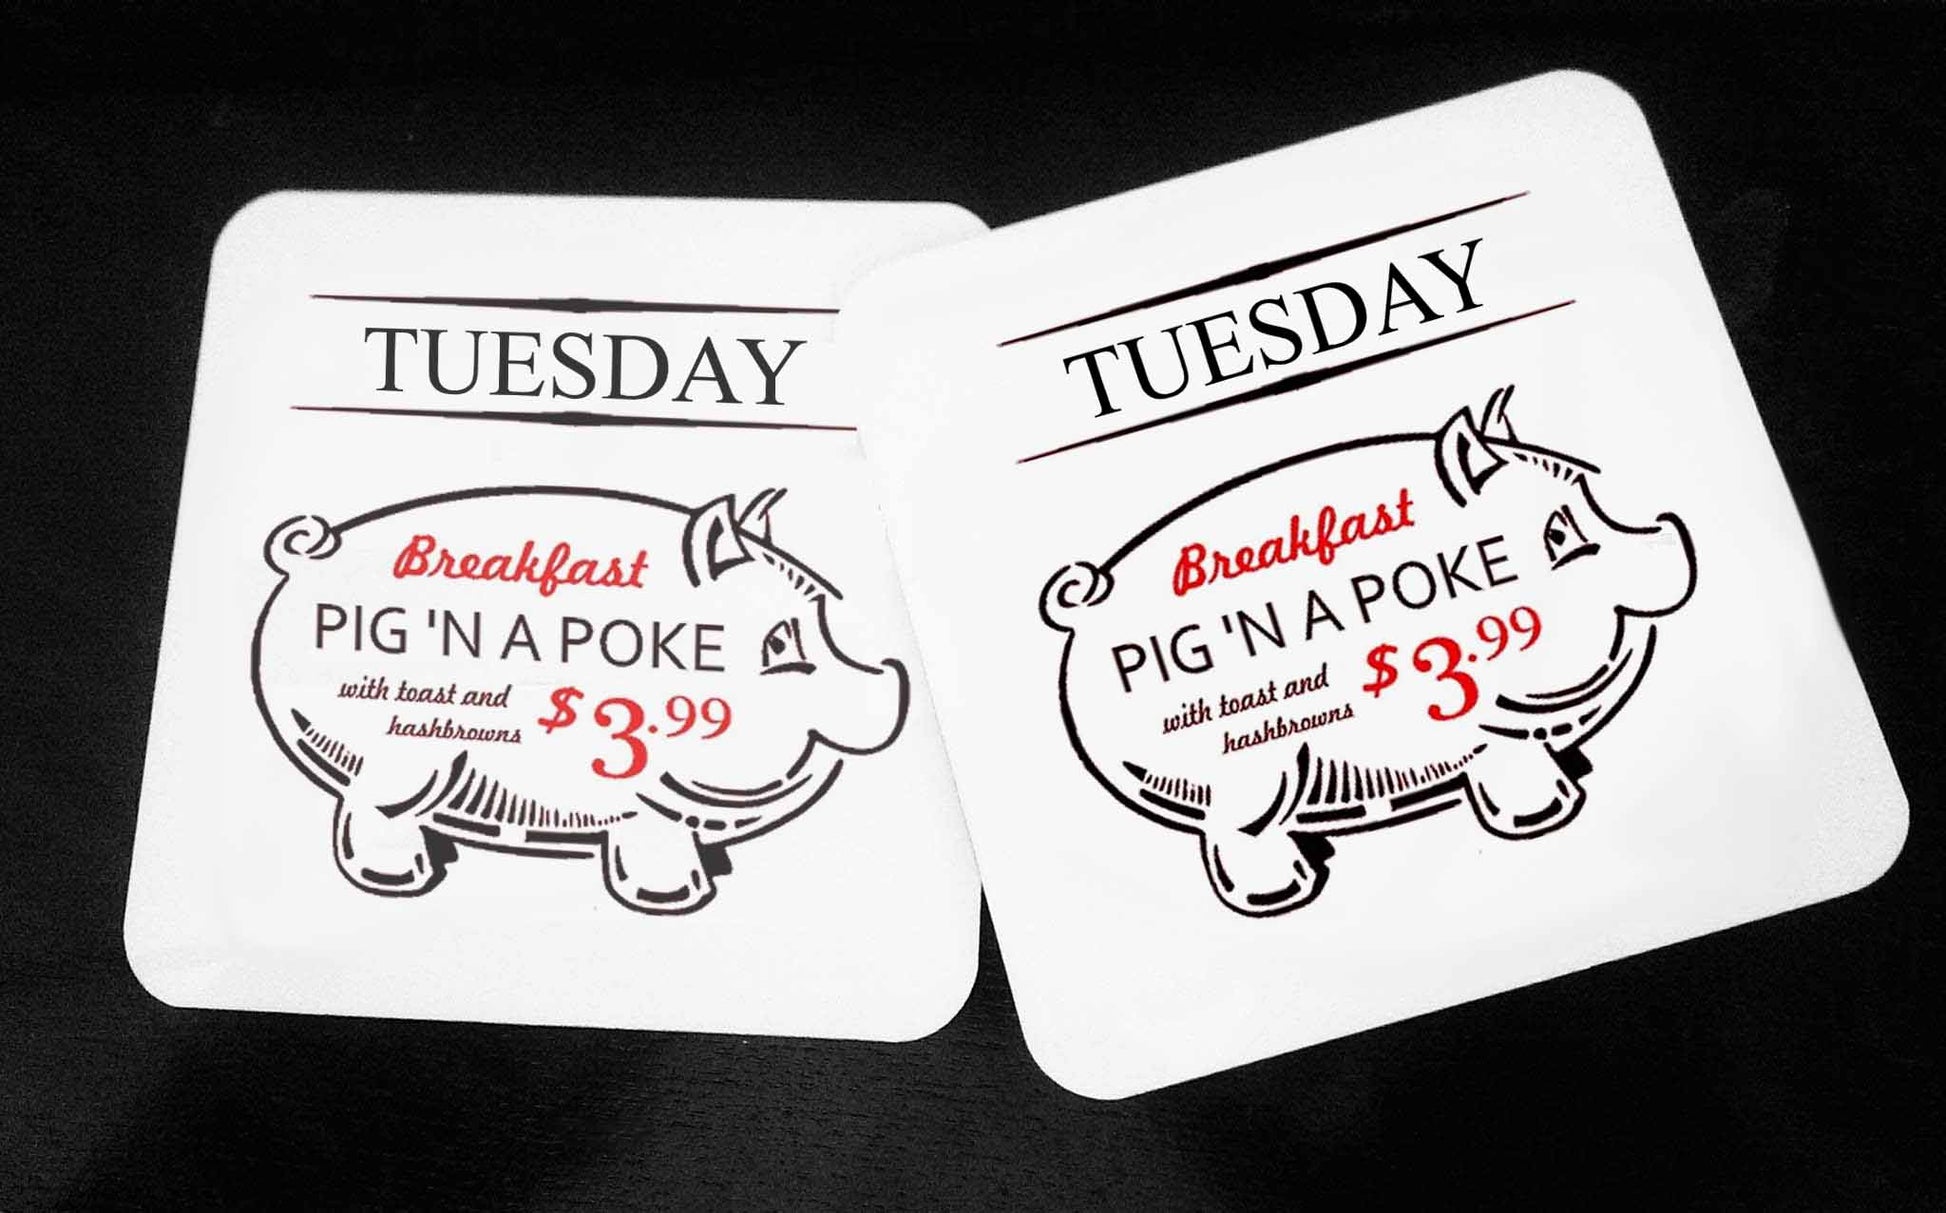 TUESDAY
Breakfast
PIG 'N A POKE
with toast and
hashbrowns
$3.99
TUESDAY
Breakfast
PIG 'N A POKE
with toast and
hashbrowns
$3.99